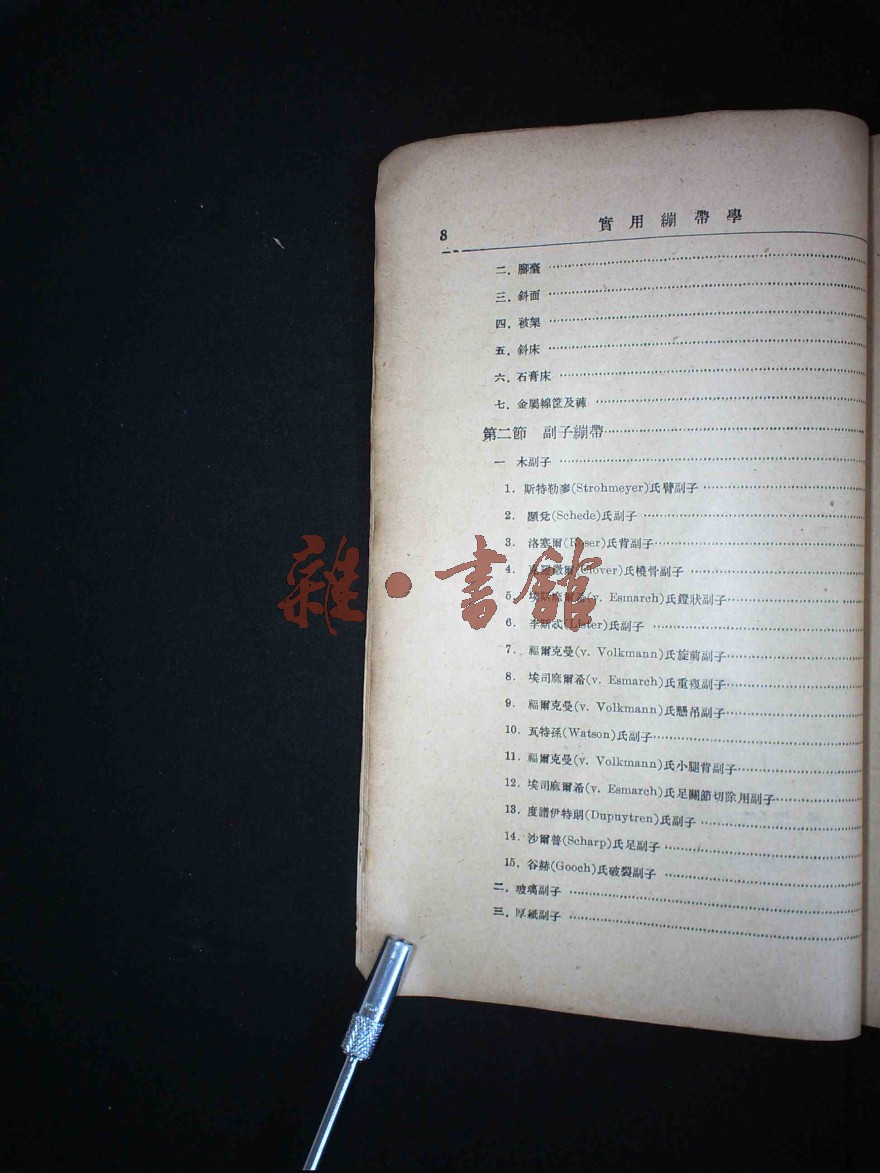 8 實用繃帶學
二. 腳臺
三. 斜面
四. 被架
五. 斜床
六. 石膏床
七. 金屬綿筐及褲
第二節 副子繃帶
一 木副子
1. 斯特勒麥(Strohmeyer)氏臂副子
2. 顯兌(Schede)氏副子
3. 洛塞爾(Roser)氏背副子
4. 爾(Clover)氏橈骨副子
5. 埃斯麻爾希(v. Esmarch)氏鐙狀副子
6. 李斯忒(Lister)氏副子
7. 福爾克曼(v. Volkmann)氏旋前副子
8. 埃司麻爾希(v. Esmarch)氏重複副子
9. 福爾克曼(v. Volkmann)氏懸吊副子
10. 瓦特孫(Watson)氏副子
11. 福爾克曼(v. Volkmann)氏小腿背副子
12. 埃司麻爾希(v. Esmarch)氏足關節切除用副子
13. 度譜伊特朗(Dupuytren)氏副子
14. 沙爾普(Scharp)氏足副子
15. 谷赫(Gooch)氏破裂副子
二. 玻璃副子
三. 厚紙副子
雜·書館